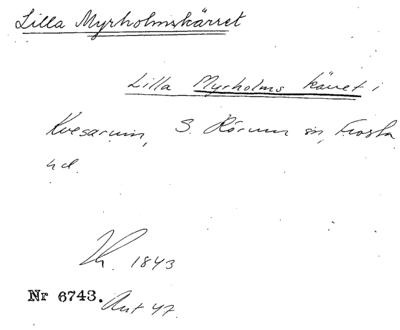 Lilla Myrholmskärret
Lilla Myrholms kärret i
Kvesarum, S. Rörum sn, Frosta
hd.
1843
Nr 6743. Akt 47.